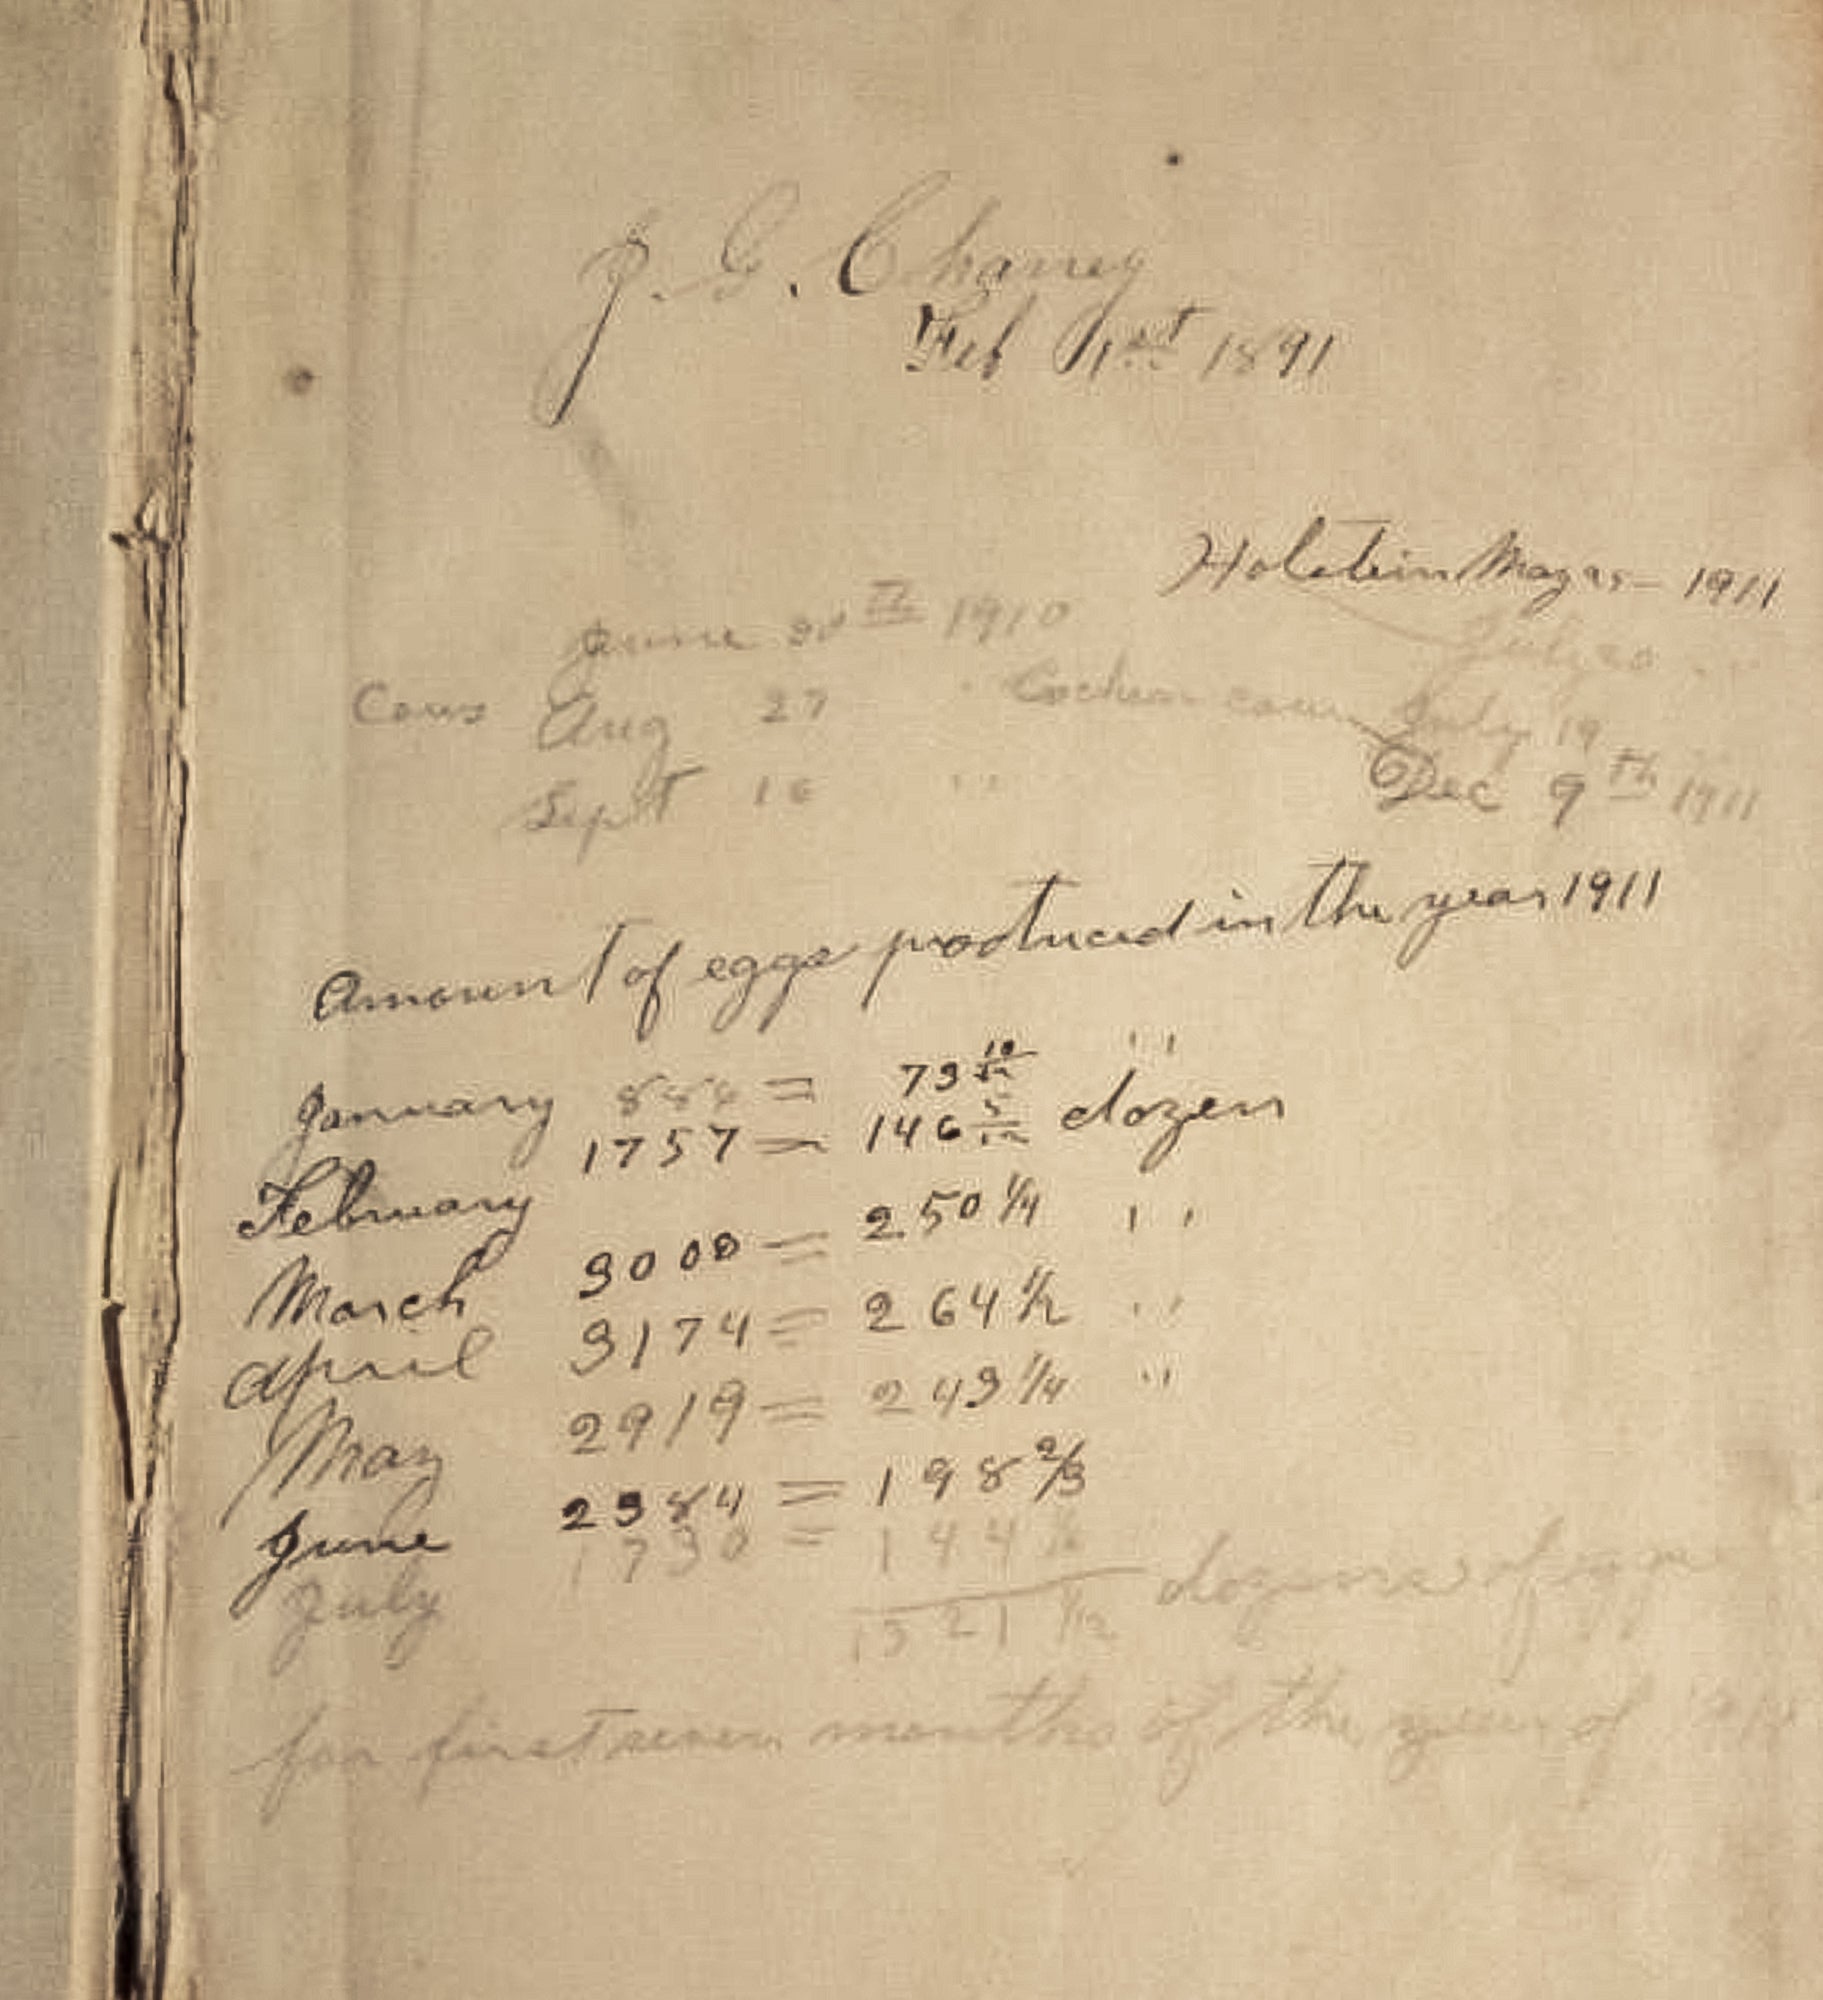 J. G. Chaney
Feb 1st 1891
Holstein May 25 – 1911
June 30th 1910
July 20 "
Cows Aug 27 " cow July 19
Sept 16 " Dec 9th 1911
Amount of eggs produced in the year 1911
January 886 = 73 10/12 "
1757 = 146 5/12 dozen
February
March 3000 = 250 1/4 "
April 3174 = 264 1/2 "
May 2919 = 243 1/4 "
June 2384 = 198 2/3
July 1730 = 144 1/6
1321 1/12 dozens of eggs
for first seven months of the year of